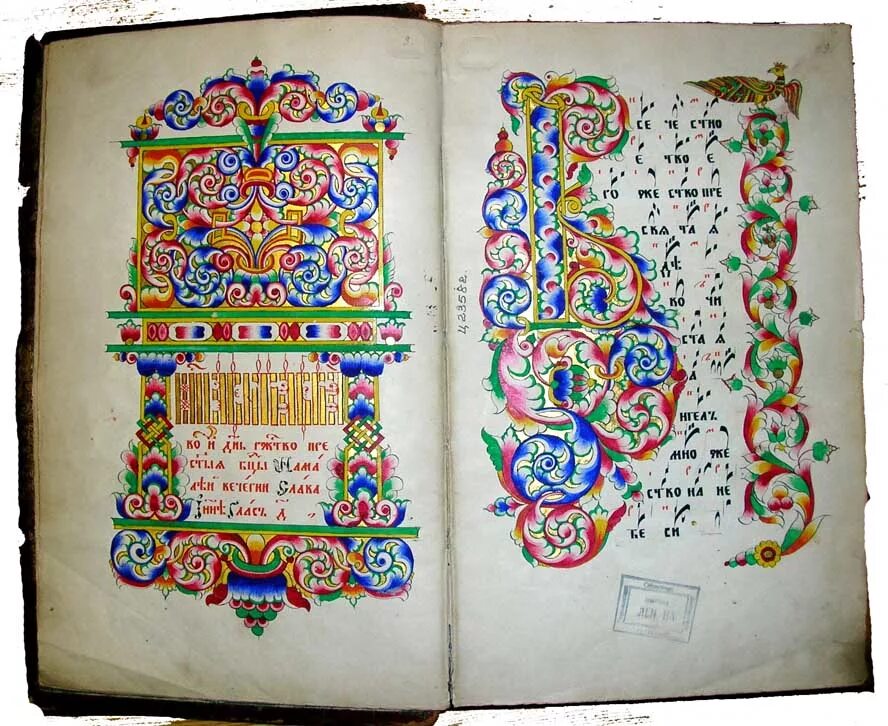 во и҃ дн҃ь рж҃тво пре
ст҃ыѧ бц҃ы На ма
лѣи вечерни Слава
И ннѣ Гласъ д҃
Ц 23582.
В
се че стно
е тво е
ро же ство пре
свѧ та ѧ
дѣ
во чи
ста ѧ
а
нгелъ
мно же
ство на не
бе си